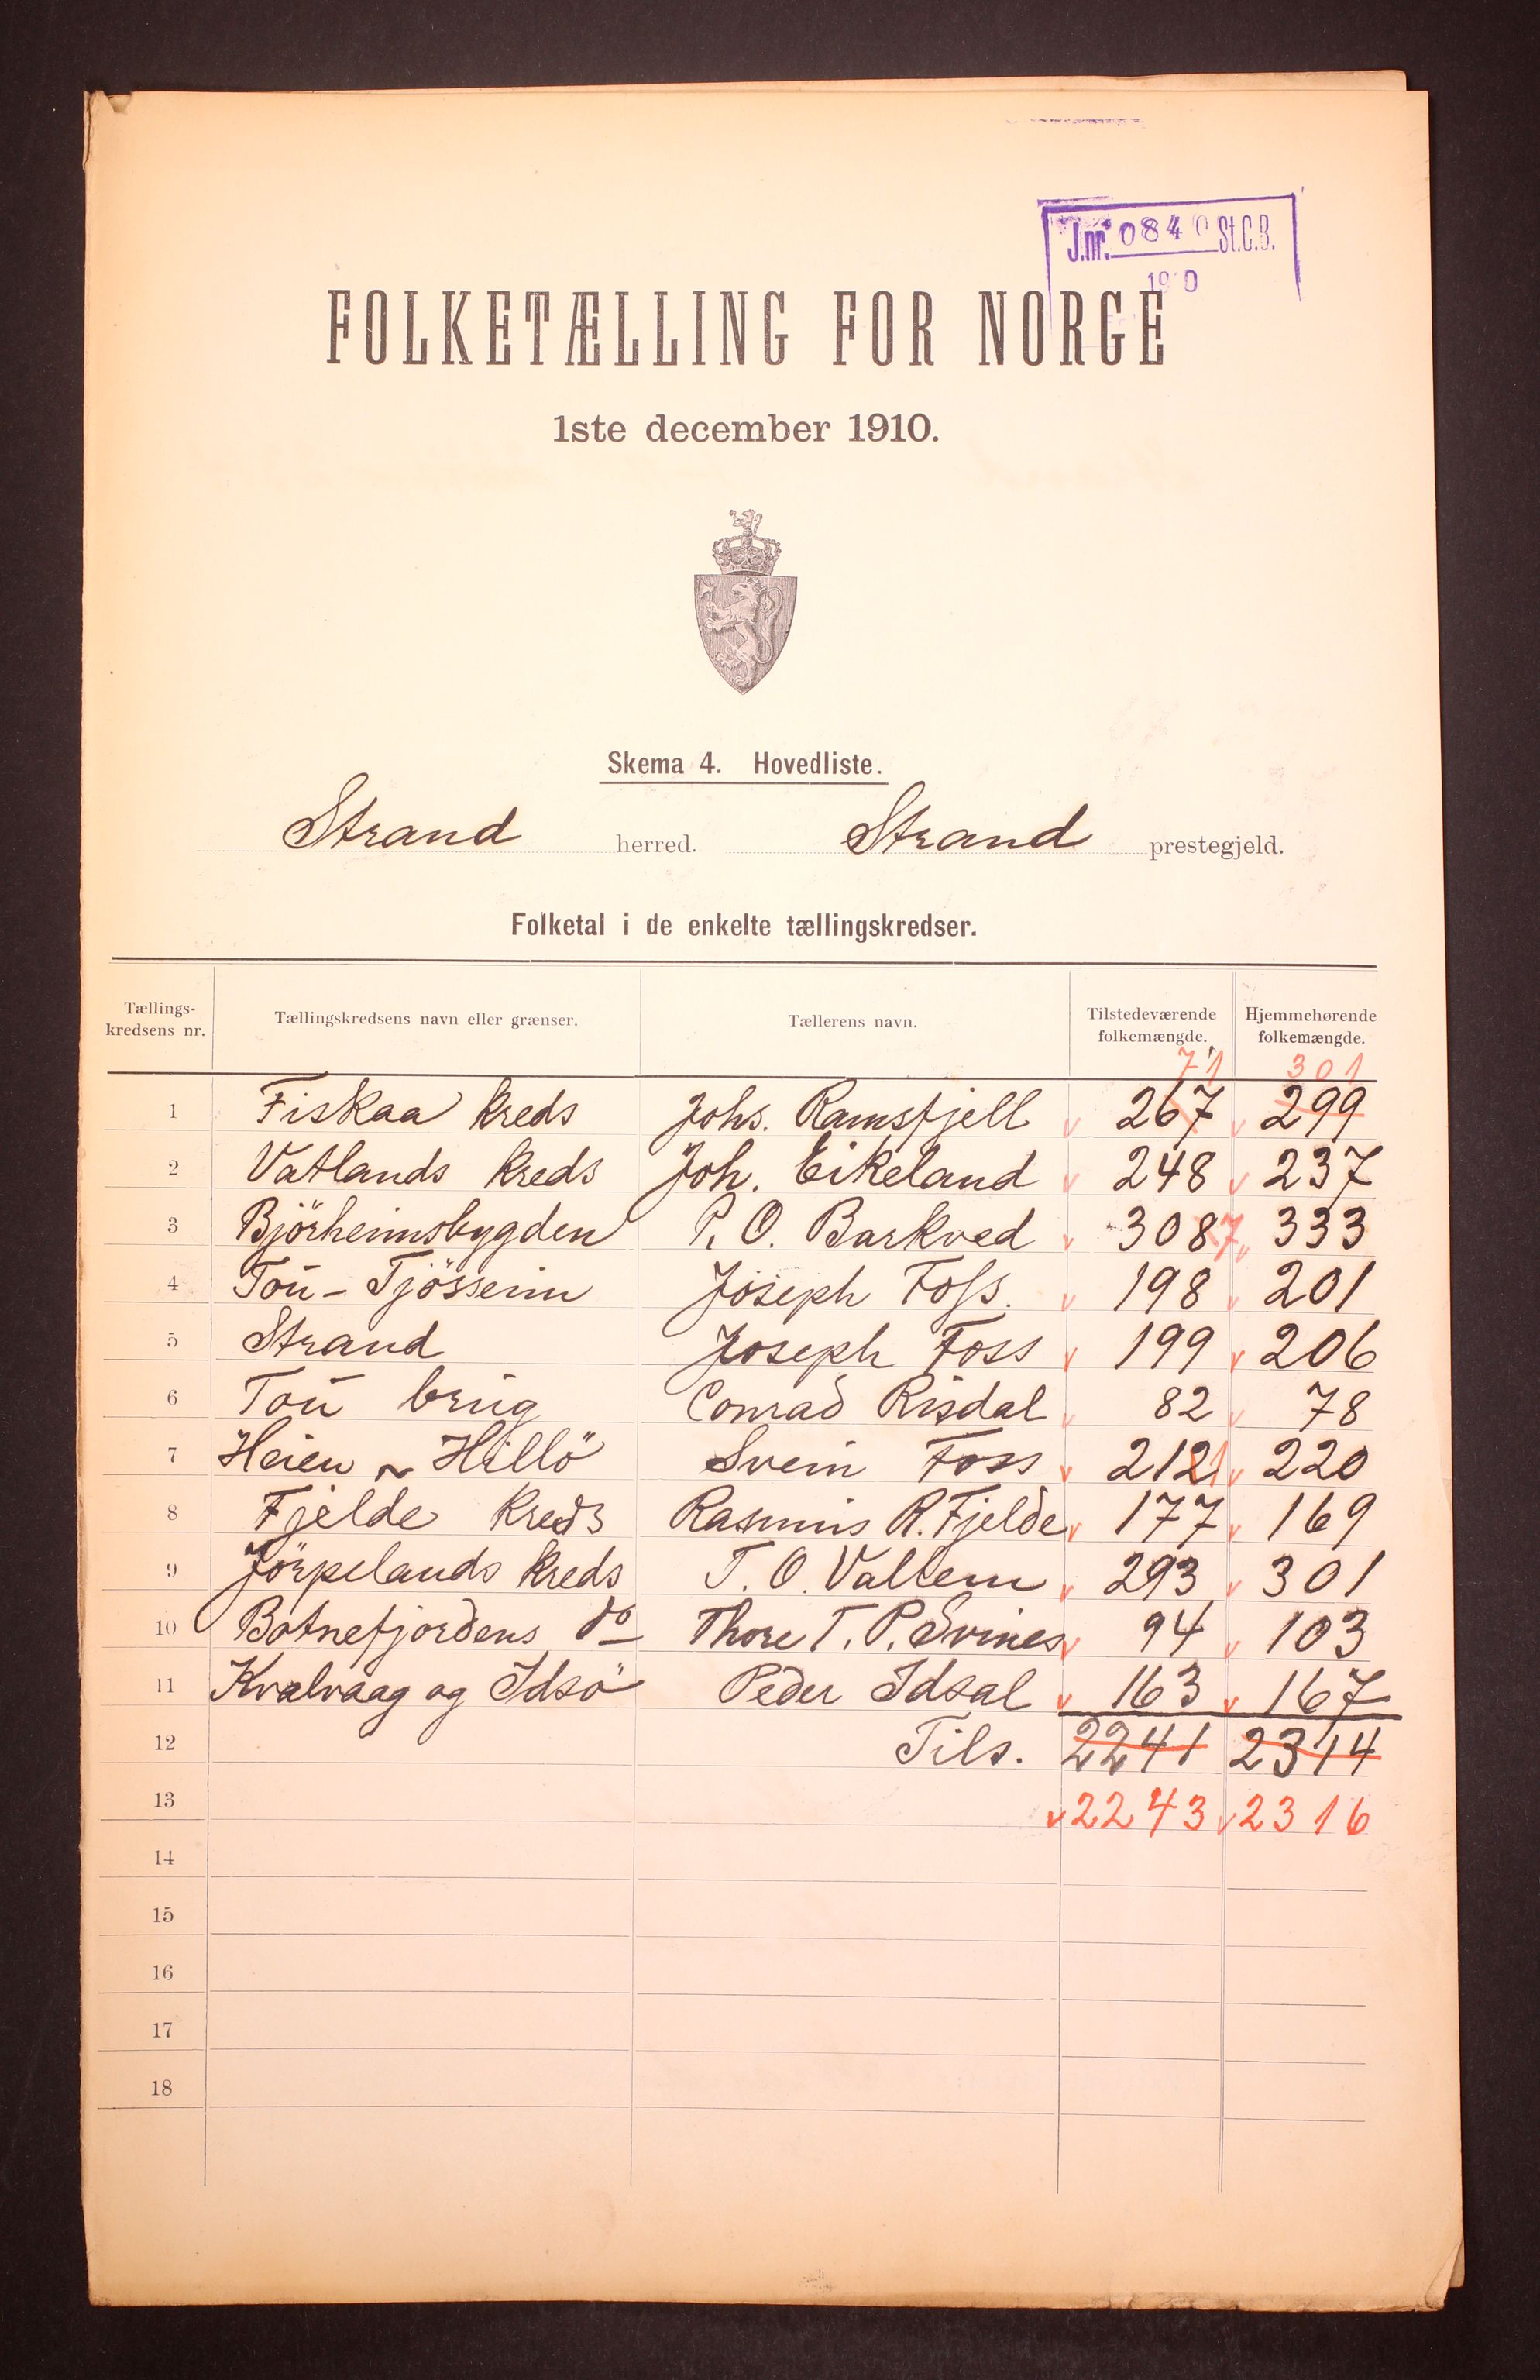 J.nr. 0840 St.C.B.
FOLKETÆLLING FOR NORGE
1ste december 1910.
Skema 4. Hovedliste.
Strand herred. Strand prestegjeld.
Folketal i de enkelte tællingskredser.
Tællings-kredsens nr. Tællingskredsens navn eller grænser. Tællerens navn. Tilstedeværende folkemængde. Hjemmehørende folkemængde.
71 301
1 Fiskaa kreds Johs. Ramsfjell 267 299
2 Vatlands kreds Joh. Eikeland 248 237
3 Bjørheimsbygden P. O. Barkved 308 7 333
4 Tou - Tjösseim Joseph Foss. 198 201
5 Strand Joseph Foss 199 206
6 Tou brug Conrad Risdal 82 78
7 Heien ~ Hillö Svein Foss 212 1 220
8 Fjelde kreds Rasmus R. Fjelde 177 169
9 Jörpelands kreds T. O. Valheim 293 301
10 Botnefjordens do Thore T. P. Svines 94 103
11 Kvalvaag og Idsö Peder Idsal 163 167
12 Tils. 2241 2314
13 2243 2316
14
15
16
17
18